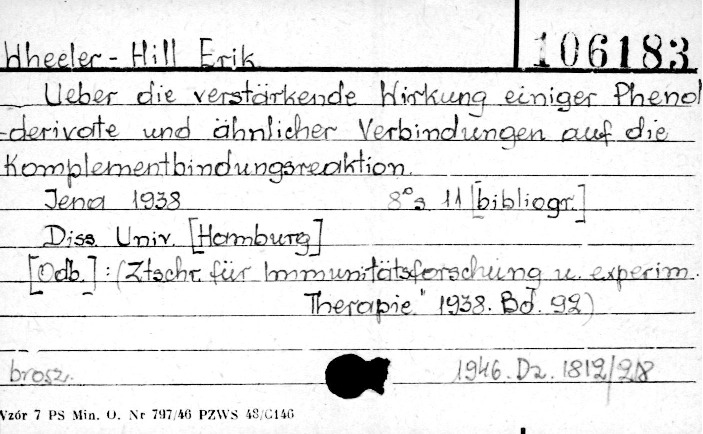 Wheeler-Hill Erik 106183
Ueber die verstärkende Wirkung einiger Phenol
-derivate und ähnlicher Verbindungen auf die
Komplementbindungsreaktion.
Jena 1938 8° s 11 [bibliogr.]
Diss. Univ. [Hamburg]
[Odb.]: (Ztschr. für Immunitätsforschung u. experim.
Therapie." 1938. Bd. 92)
brosz. 1946. Dz. 1812/218
Wzór 7 PS Min. O. Nr 797/46 PZWS 48/C146